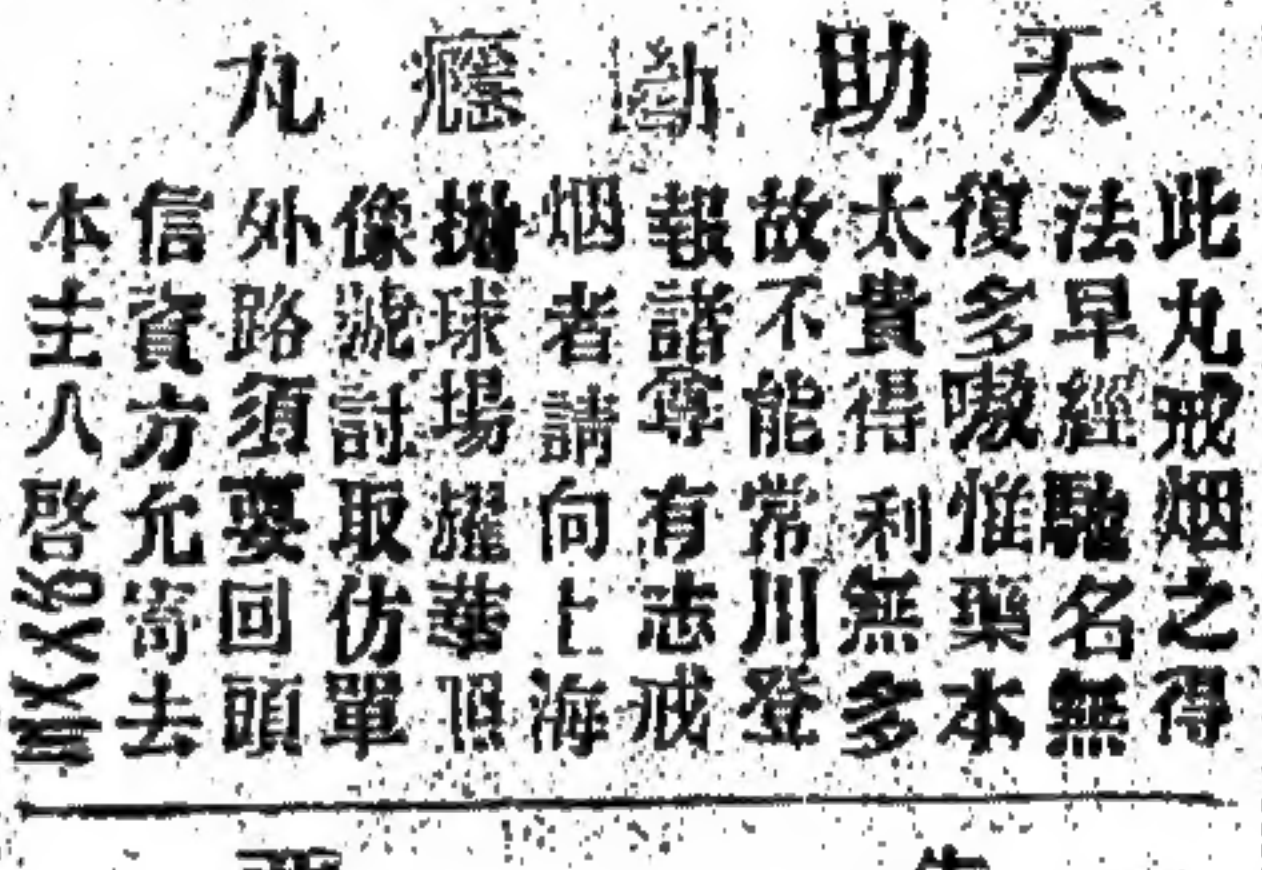 天助斷癮丸
此丸戒烟之得
法早經馳名無
復多嗷惟藥本
太貴得利無多
故不能常川登
報諸尊有志戒
烟者請向上海
拋球場耀華照
像號討取仿單
外路須要回頭
信資方允寄去
本主人啓